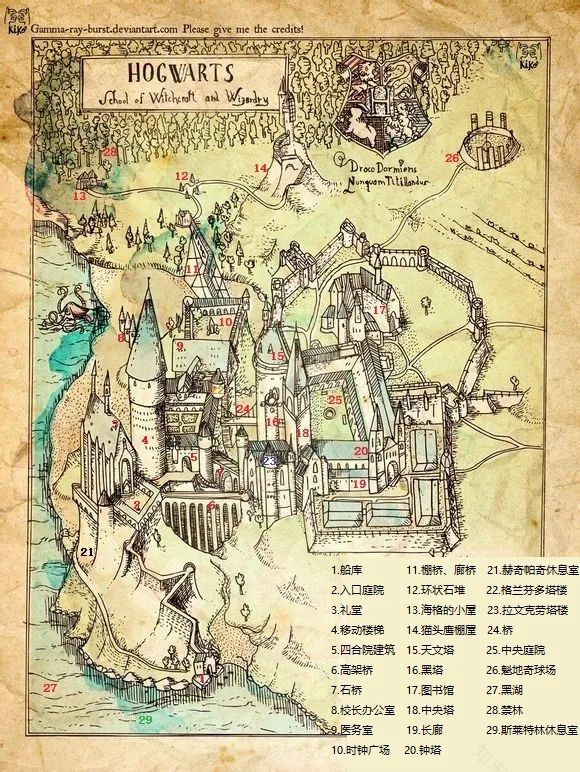 KiKo
Gamma-ray-burst.deviantart.com Please give me the credits!
KiKo
HOGWARTS
School of Witchcraft and Wizardry
Draco Dormiens
Nunquam Titillandus
28
26
14
12
13
11
17
10
8
9
15
25
24
3
4
16
18
20
5
23
19
2
6
21
1
27
29
1.船库 11.棚桥、廊桥 21.赫奇帕奇休息室
2.入口庭院 12.环状石堆 22.格兰芬多塔楼
3.礼堂 13.海格的小屋 23.拉文克劳塔楼
4.移动楼梯 14.猫头鹰棚屋 24.桥
5.四合院建筑 15.天文塔 25.中央庭院
6.高架桥 16.黑塔 26.魁地奇球场
7.石桥 17.图书馆 27.黑湖
8.校长办公室 18.中央塔 28.禁林
9.医务室 19.长廊 29.斯莱特林休息室
10.时钟广场 20.钟塔